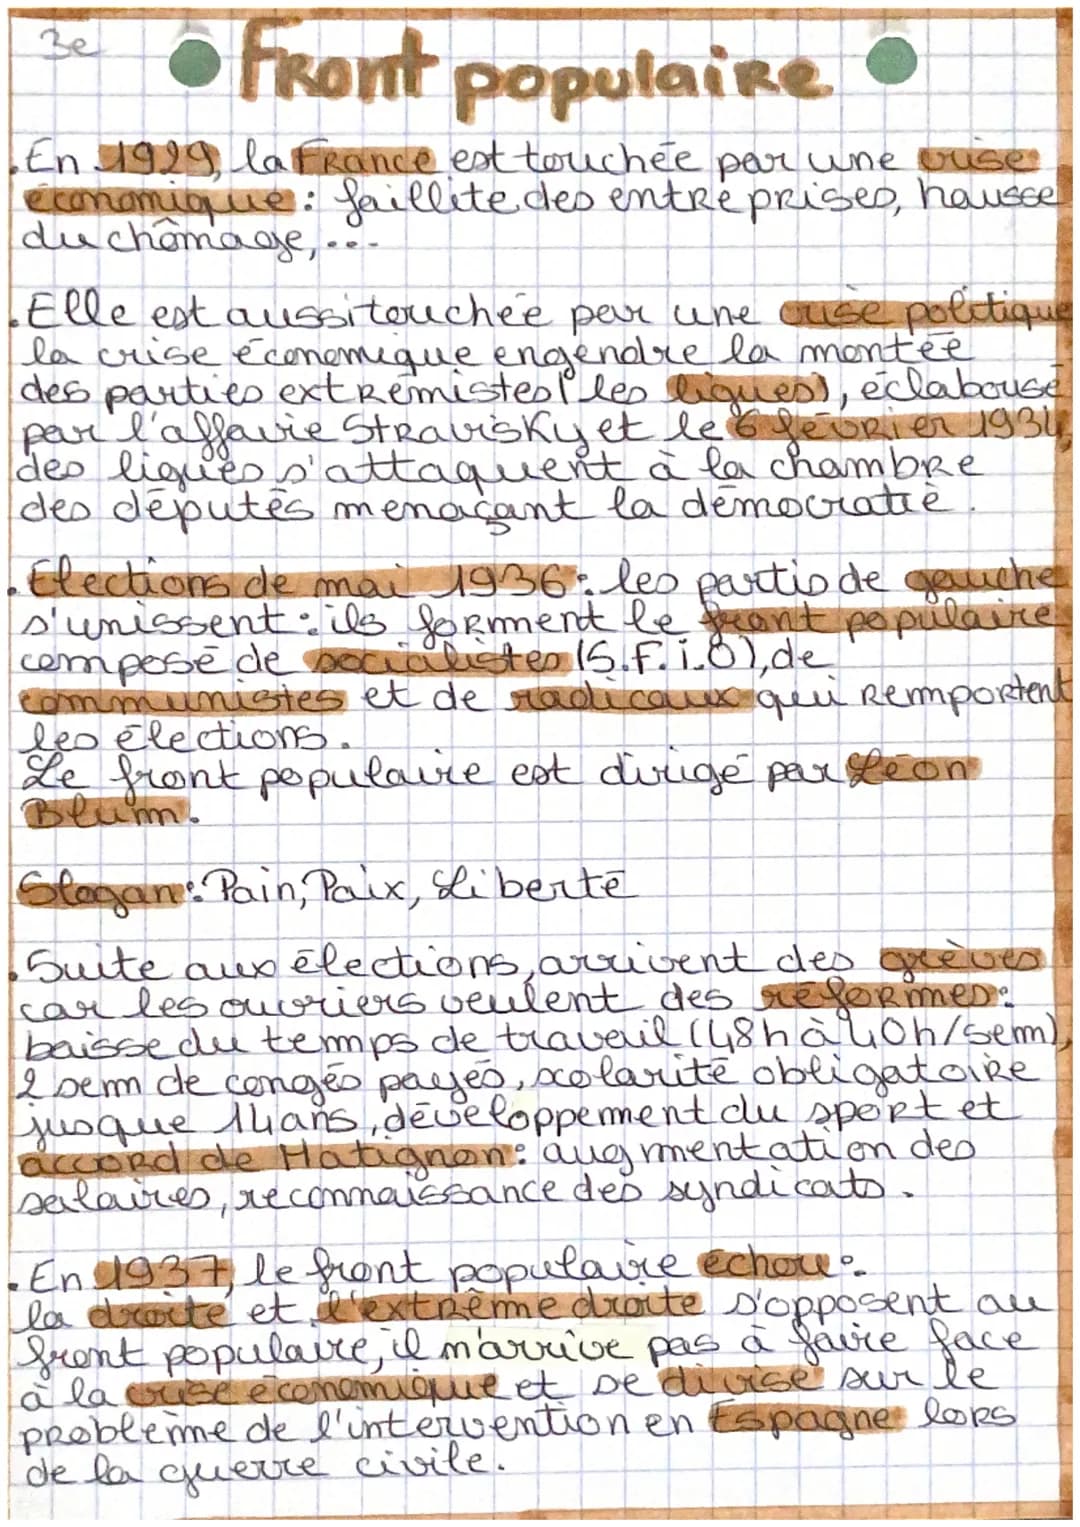 3e
Front populaire
. En 1929, la France est touchée par une crise
économique : faillite des entreprises, hausse
du chômage, ...
. Elle est aussi touchée par une crise politique
la crise économique engendre la montée
des parties extrêmistes (les ligues), éclabousé
par l'affaire Stravisky et le 6 février 1934,
des ligues s'attaquent à la chambre
des députés menaçant la démocratie.
. Elections de mai 1936 : les partis de gauche
s'unissent : ils forment le front populaire
composé de socialistes (S.F.i.O), de
communistes et de radicaux qui remportent
les élections.
Le front populaire est dirigé par Léon
Blum.
Slogan : Pain, Paix, Liberté
. Suite aux élections, arrivent des grèves
car les ouvriers veulent des réformes :
baisse du temps de travail (48h à 40h/sem),
2 sem de congés payés, scolarité obligatoire
jusque 14ans, développement du sport et
accord de Matignon : augmentation des
salaires, reconnaissance des syndicats.
. En 1937, le front populaire échou :
la droite et l'extrême droite s'opposent au
front populaire, il n'arrive pas à faire face
à la crise économique et se divise sur le
problème de l'intervention en Espagne lors
de la guerre civile.